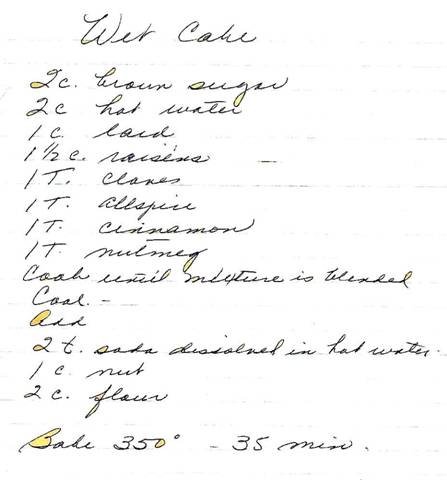 Wet Cake
2c. brown sugar
2c hot water
1 c. lard
1 1/2 c. raisens
1 T. cloves
1 T. allspice
1 T. cinnamon
1 T. nutmeg
Cook until mixture is blended
Cool. -
Add
2 t. soda dissolved in hot water.
1 c. nut
2 c. flour
Bake 350° - 35 min.